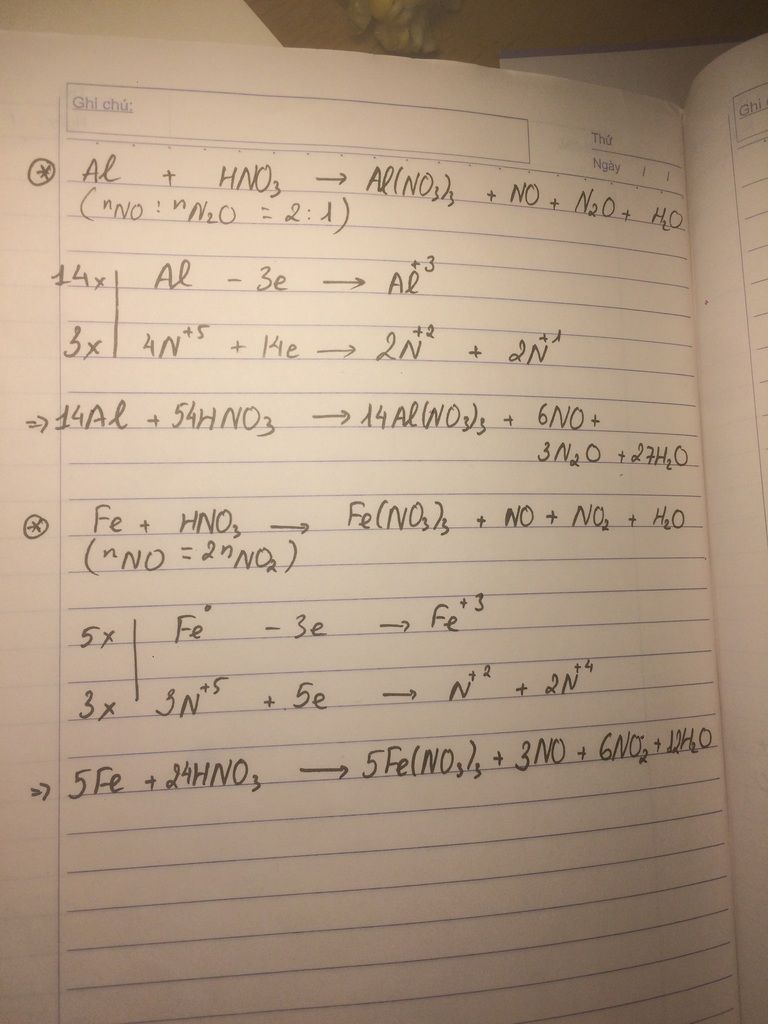 Ghi chú:
Thứ
Ngày / /
Ghi
⊛ Al + HNO₃ → Al(NO₃)₃ + NO + N₂O + H₂O
(ⁿNO : ⁿN₂O = 2 : 1)
14x | Al - 3e → Al⁺³
3x | 4N⁺⁵ + 14e → 2N⁺² + 2N⁺¹
=> 14Al + 54HNO₃ → 14Al(NO₃)₃ + 6NO +
3N₂O + 27H₂O
⊛ Fe + HNO₃ → Fe(NO₃)₃ + NO + NO₂ + H₂O
(ⁿNO = 2ⁿNO₂)
5x | Fe⁰ - 3e → Fe⁺³
3x | 3N⁺⁵ + 5e → N⁺² + 2N⁺⁴
=> 5Fe + 24HNO₃ → 5Fe(NO₃)₃ + 3NO + 6NO₂ + 12H₂O